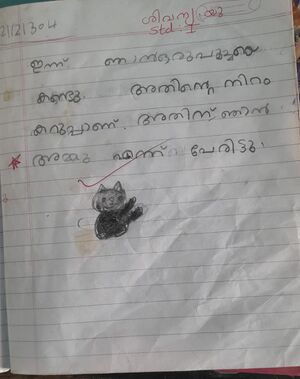 21/2/2024
ശിവന്യ യു
std : I
ഇന്ന് ഞാൻ ഒരു പൂച്ചയെ
കണ്ടു. അതിന്റെ നിറം
കറുപ്പാണ്. അതിന് ഞാൻ
അമ്മു എന്ന് പേരിട്ടു.